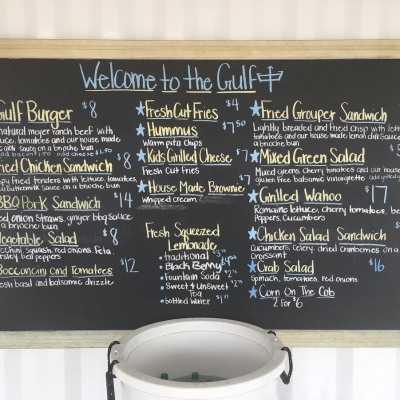 Welcome to the Gulf
Gulf Burger $8
natural meyer ranch beef with
tomatoes and our house made
sauce on a brioche bun
add bacon 1.50 add cheese
Chicken Sandwich $8
fried tenders with lettuce, tomatoes,
Buttermilk Sauce on a brioche bun
BBQ Pork Sandwich $14
onion straws, ginger bbq sauce
a brioche bun
Vegetable Salad $8
squash, red onions, feta,
parsley, bell peppers
Bocconcini and Tomatoes $12
fresh basil and balsamic drizzle
Fresh Cut Fries $4
Hummus $7.50
Warm pita chips
Kids Grilled Cheese $7
Fresh Cut Fries
House Made Brownie $7
Whipped cream
Fresh Squeezed
Lemonade
• traditional
• Black Berry
• fountain Soda
• Sweet & unsweet
Tea
• bottled water
Fried Grouper Sandwich
Lightly breaded and fried crisp with
tomatoes and our house made lemon dill sauce
brioche bun
Mixed Green Salad
Mixed greens, cherry tomatoes and our house
gluten free balsamic vinaigrette
Grilled Wahoo $17
Romaine lettuce, cherry tomatoes,
Peppers, Cucumbers
Chicken Salad Sandwich
Cucumbers, celery, dried cranberries on a
Croissant
Crab Salad $16
Spinach, tomatoes, red onions
Corn On The Cob
2 For $6